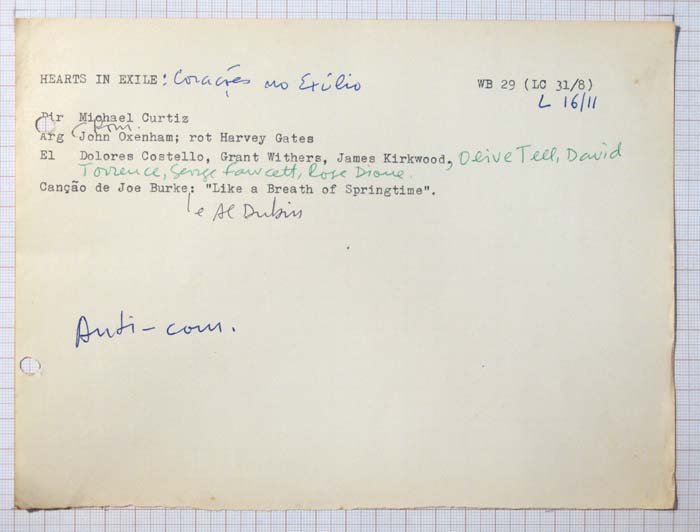 HEARTS IN EXILE: Corações no Exílio WB 29 (LC 31/8)
L 16/11
Dir Michael Curtiz
Rom.
Arg John Oxenham; rot Harvey Gates
El Dolores Costello, Grant Withers, James Kirkwood, Olive Tell, David
Torrence, George Fawcett, Rose Dione.
Canção de Joe Burke: "Like a Breath of Springtime".
e Al Dubin
Anti-com.